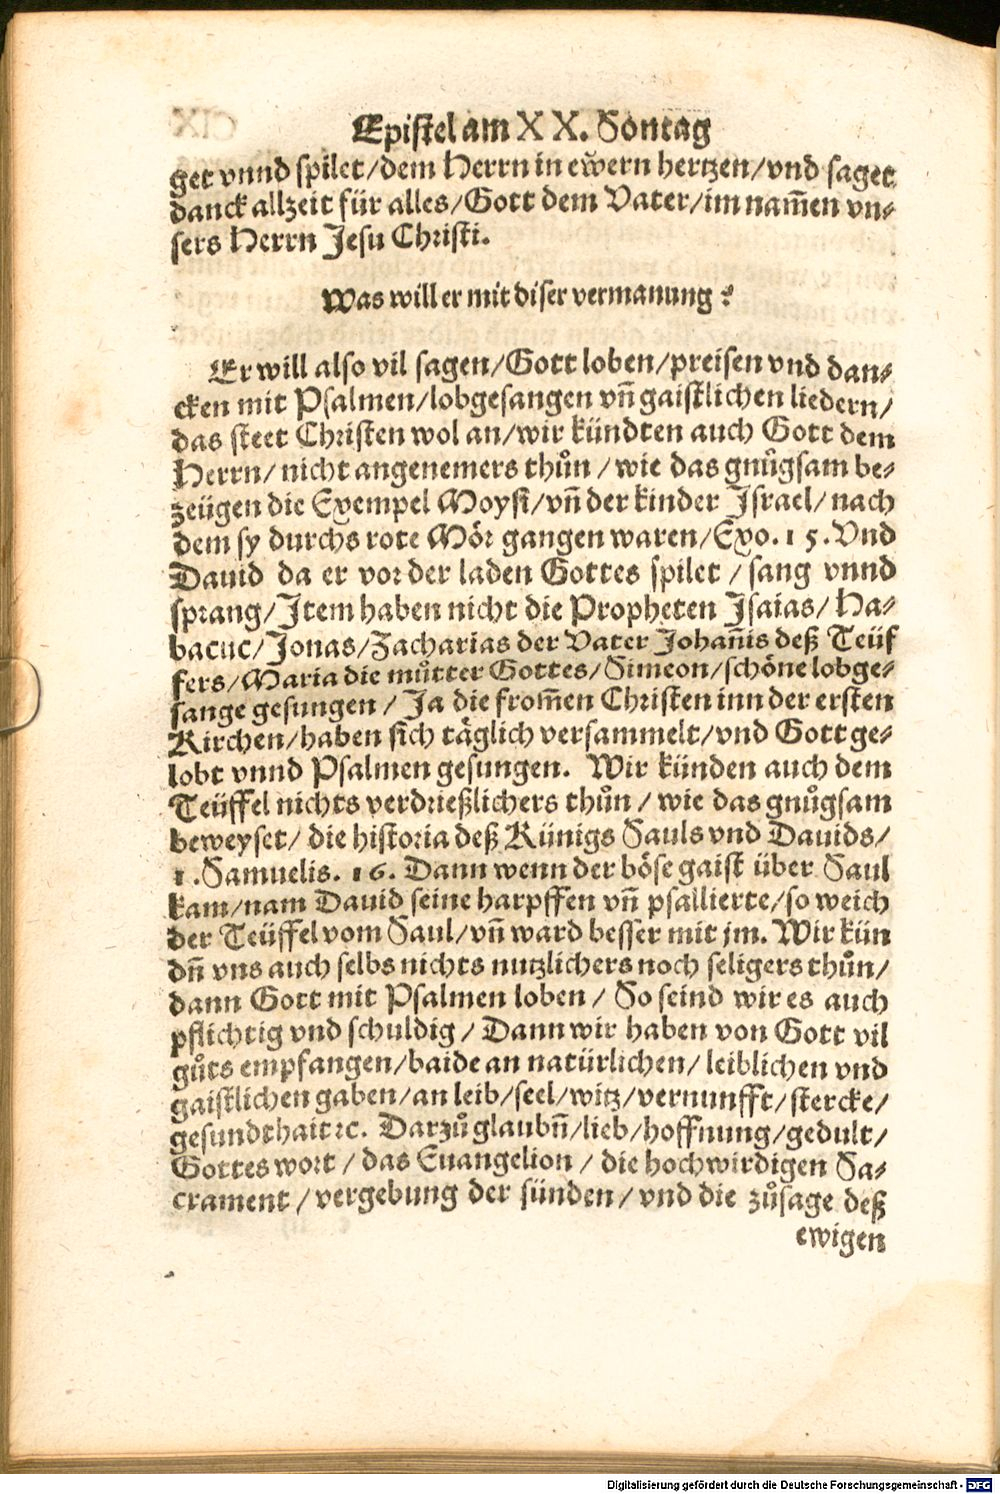 Epistel am XX. Sontag
get vnnd spilet/dem Herrn in ew̃ern hertzen/vnd saget
danck allzeit für alles/Gott dem Vater/im nam̃en vn⸗
sers Herrn Jesu Christi.
Was will er mit diser vermanung?
Er will also vil sagen/Gott loben/preisen vnd dan⸗
cken mit Psalmen/lobgesangen vñ gaistlichen liedern/
das steet Christen wol an/wir kündten auch Gott dem
Herrn/nicht angenemers thůn/wie das gnůgsam be⸗
zeügen die Exempel Moysi/vñ der kinder Israel/nach
dem sy durchs rote Mör gangen waren/Exo. 15. Vnd
Dauid da er vor der laden Gottes spilet/sang vnnd
sprang/Item haben nicht die Propheten Isaias/Ha⸗
bacuc/Jonas/Zacharias der Vater Johañis deß Teüf
fers/Maria die můtter Gottes/Simeon/schöne lobge⸗
sange gesungen/Ja die from̃en Christen inn der ersten
Kirchen/haben sich täglich versammelt/vnd Gott ge⸗
lobt vnnd Psalmen gesungen. Wir künden auch dem
Teüffel nichts verdrießlichers thůn/wie das gnůgsam
beweyset/die historia deß Künigs Sauls vnd Dauids/
1. Samuelis. 16. Dann wenn der böse gaist über Saul
kam/nam Dauid seine harpffen vñ psallierte/so weich
der Teüffel vom Saul/vñ ward besser mit jm. Wir kün
dñ vns auch selbs nichts nutzlichers noch seligers thůn/
dann Gott mit Psalmen loben/So seind wir es auch
pflichtig vnd schuldig/Dann wir haben von Gott vil
gůts empfangen/baide an natürlichen/leiblichen vnd
gaistlichen gaben/an leib/seel/witz/vernunfft/stercke/
gesundthait ꝛc. Darzů glaubñ/lieb/hoffnung/gedult/
Gottes wort/das Euangelion/die hochwirdigen Sa⸗
crament/vergebung der sünden/vnd die zůsage deß
ewigen
Digitalisierung gefördert durch die Deutsche Forschungsgemeinschaft - DFG